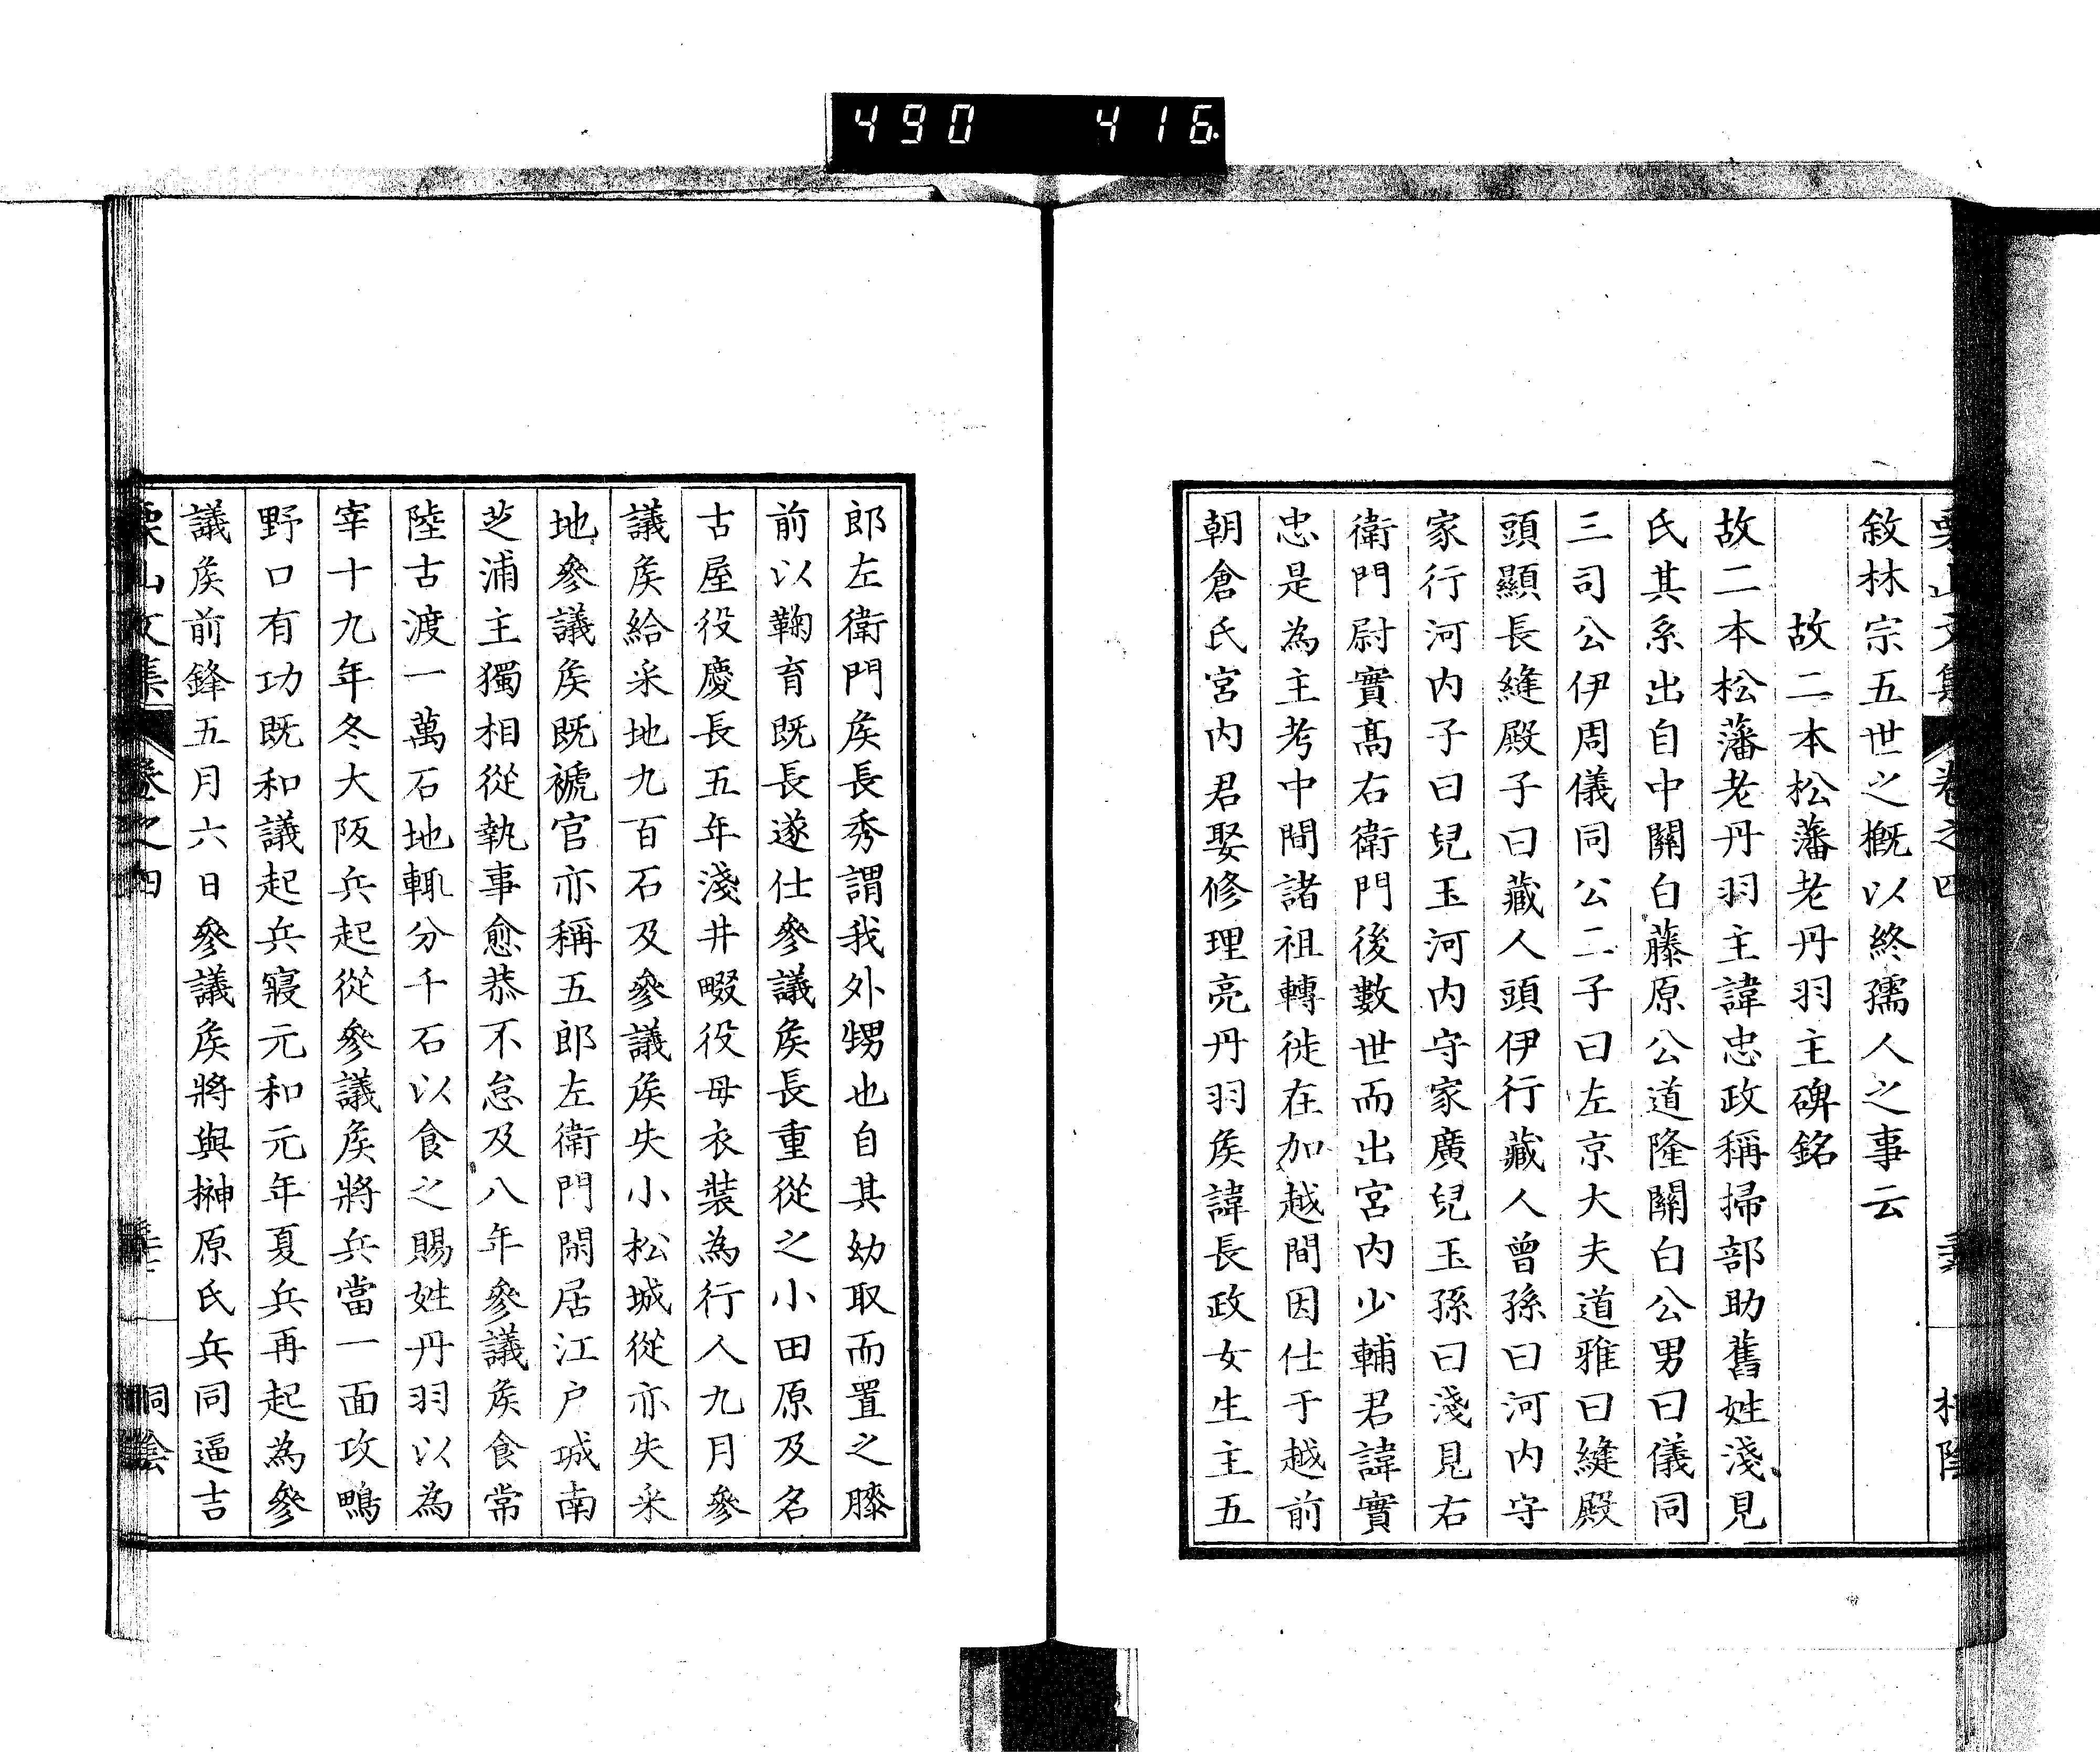 490 416
敘林宗五世之概以終孺人之事云
故二本松藩老丹羽主碑銘
故二本松藩老丹羽主諱忠政稱掃部助舊姓淺見
氏其系出自中關白藤原公道隆關白公男曰儀同
三司公伊周儀同公二子曰左京大夫道雅曰縫殿
頭顯長縫殿子曰藏人頭伊行藏人曾孫曰河内守
家行河内子曰兒玉河内守家廣兒玉孫曰淺見右
衛門尉實髙右衛門後數世而出宮内少輔君諱實
忠是為主考中間諸祖轉徙在加越間因仕于越前
朝倉氏宮内君娶修理亮丹羽矦諱長政女生主五
郎左衛門矦長秀謂我外甥也自其幼取而置之膝
前以鞠育既長遂仕參議矦長重從之小田原及名
古屋役慶長五年淺井畷役母衣裝為行人九月參
議矦給采地九百石及參議矦失小松城從亦失采
地參議矦既褫官亦稱五郎左衛門閑居江戸城南
芝浦主獨相從執事愈恭不怠及八年參議矦食常
陸古渡一萬石地輒分千石以食之賜姓丹羽以為
宰十九年冬大阪兵起從參議矦將兵當一面攻鴫
野口有功既和議起兵寢元和元年夏兵再起為參
議矦前鋒五月六日參議矦將與榊原氏兵同逼吉
栗山文集 卷之四